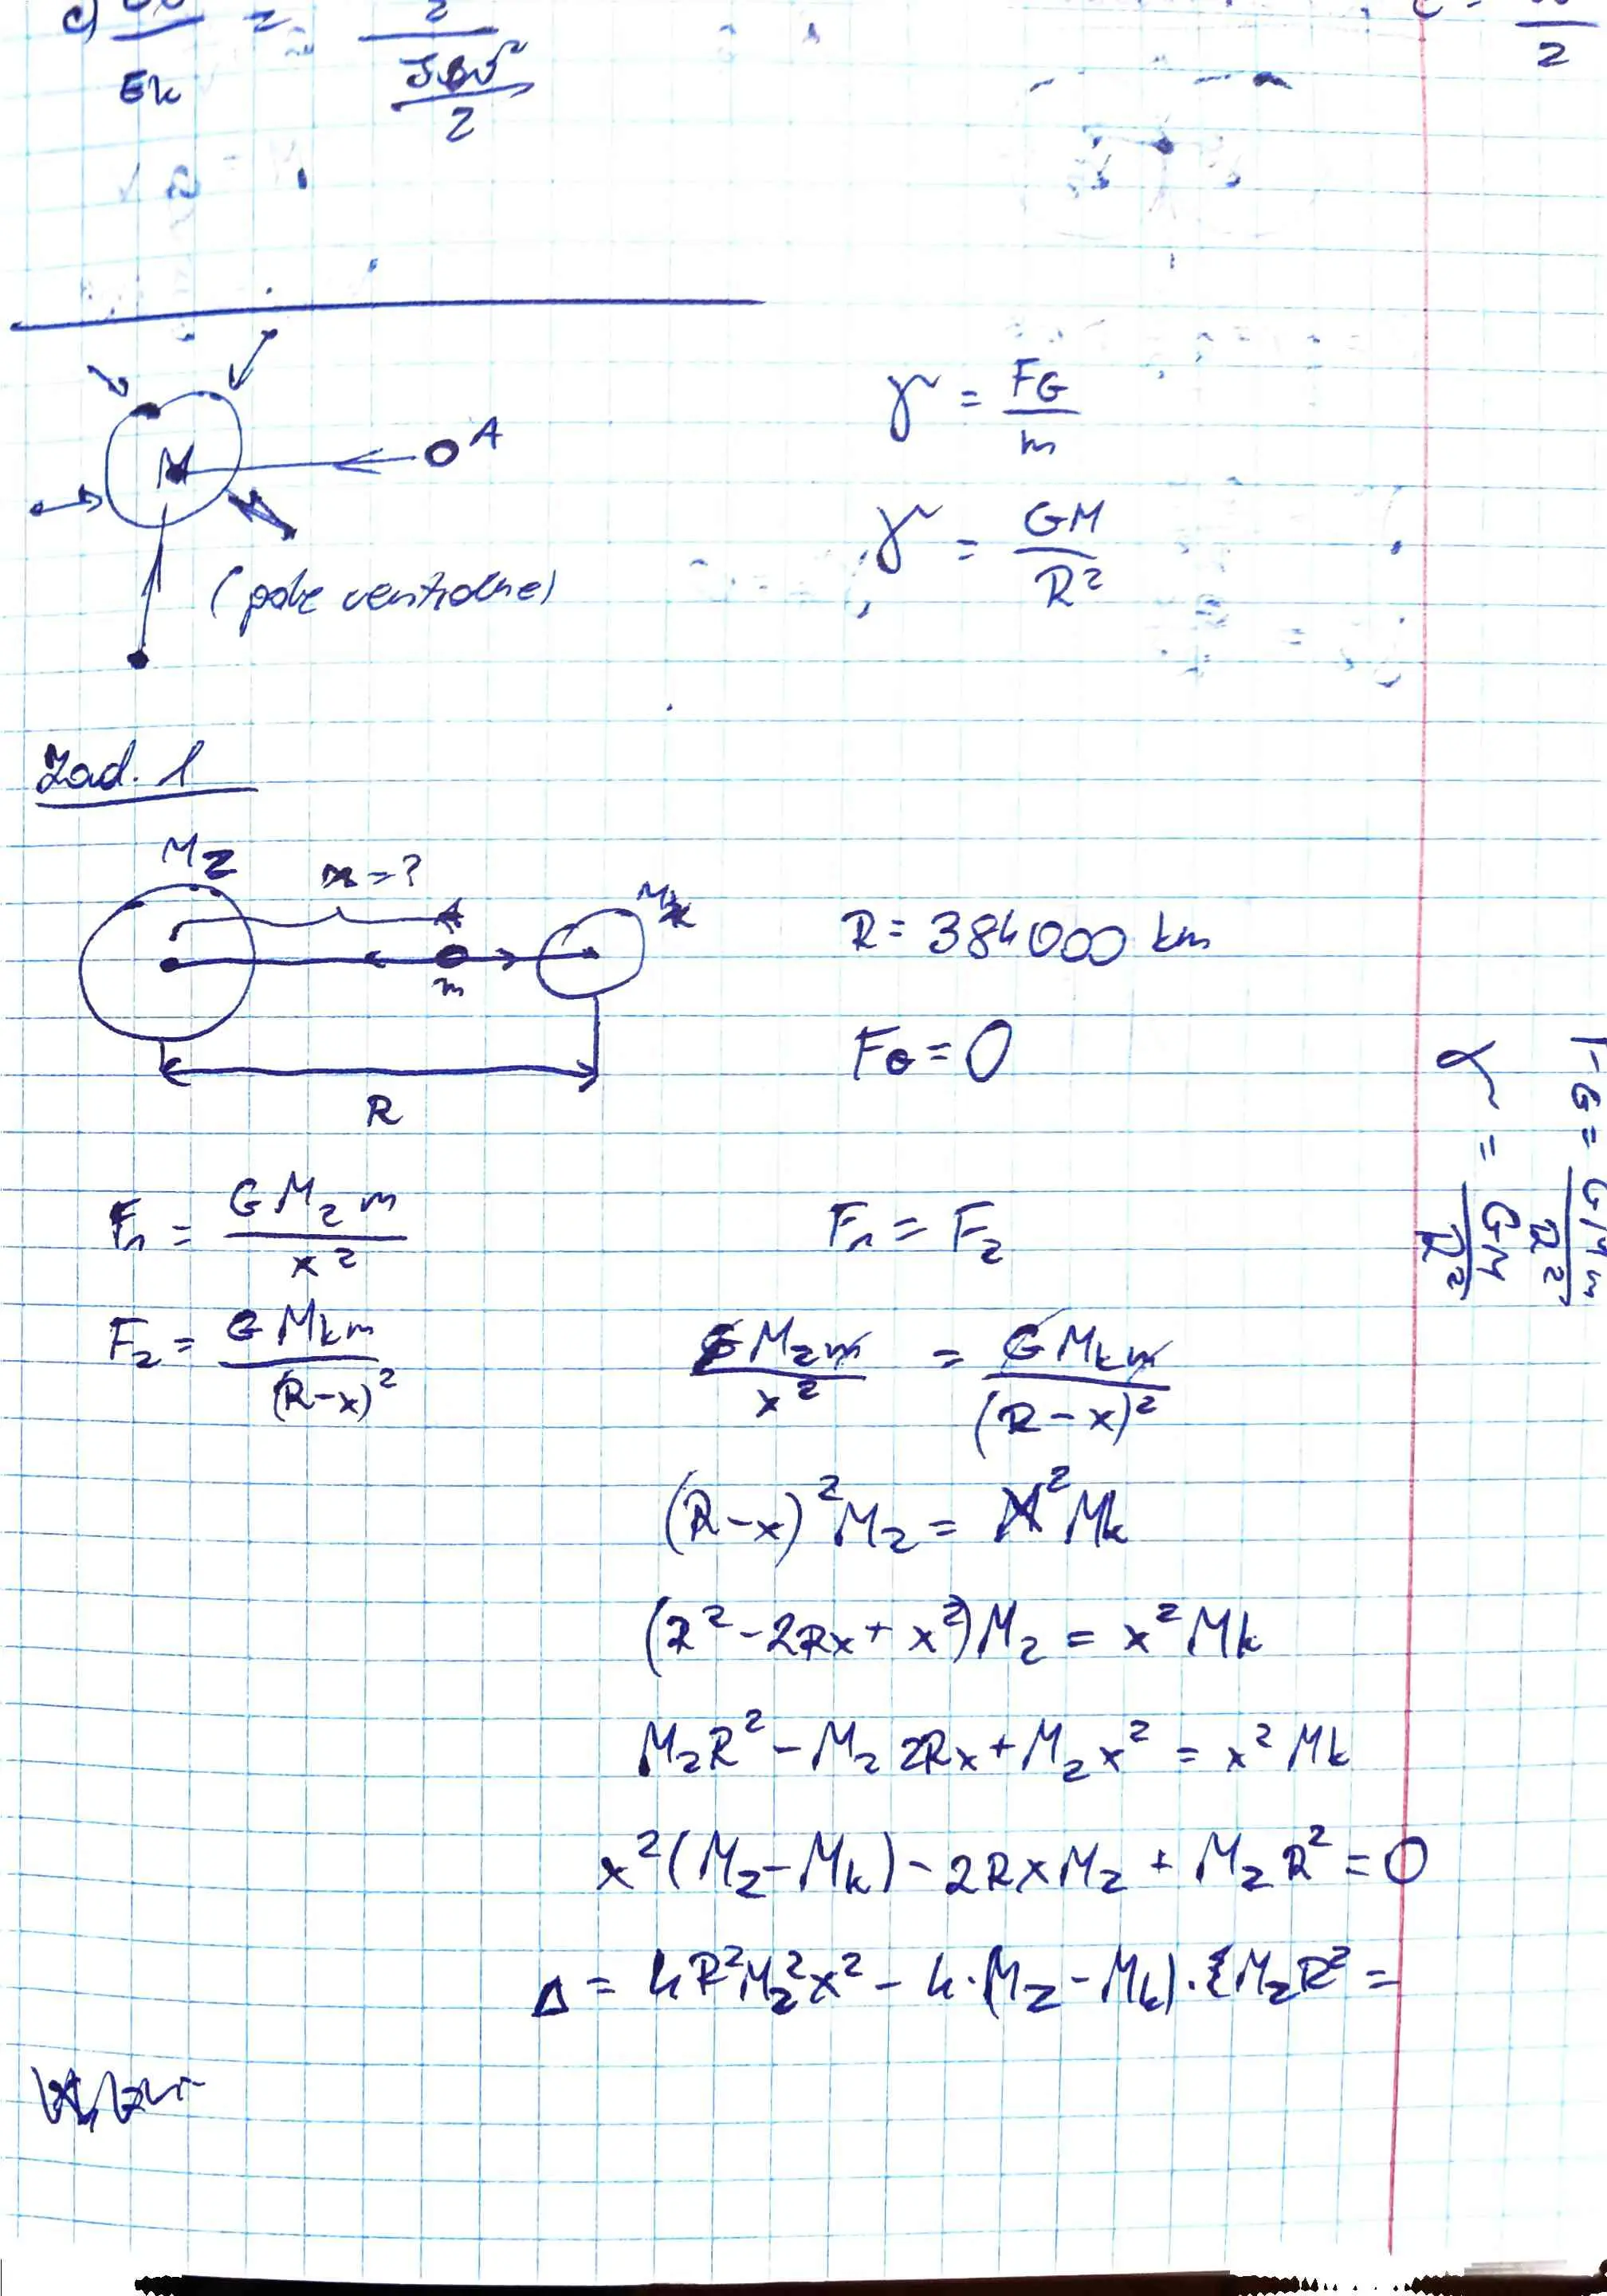 c)
Ek = 2 / (Jω²/2)
2
A
M
(pole centralne)
γ = FG/m
γ = GM/R²
Zad. 1
MZ
x=?
A
Mk
m
R
R = 384000 km
FG = 0
F₁ = GMzm/x²
F₁ = F₂
F₂ = GMkm/(R-x)²
GMzm/x² = GMkm/(R-x)²
(R-x)²Mz = x²Mk
(R²-2Rx+x²)Mz = x²Mk
MzR²-Mz2Rx+Mzx² = x²Mk
x²(Mz-Mk)-2RxMz+MzR²=0
Δ = 4R²Mz²x²-4·(Mz-Mk)·MzR²=
FG = GMm/R²
γ = GM/R²